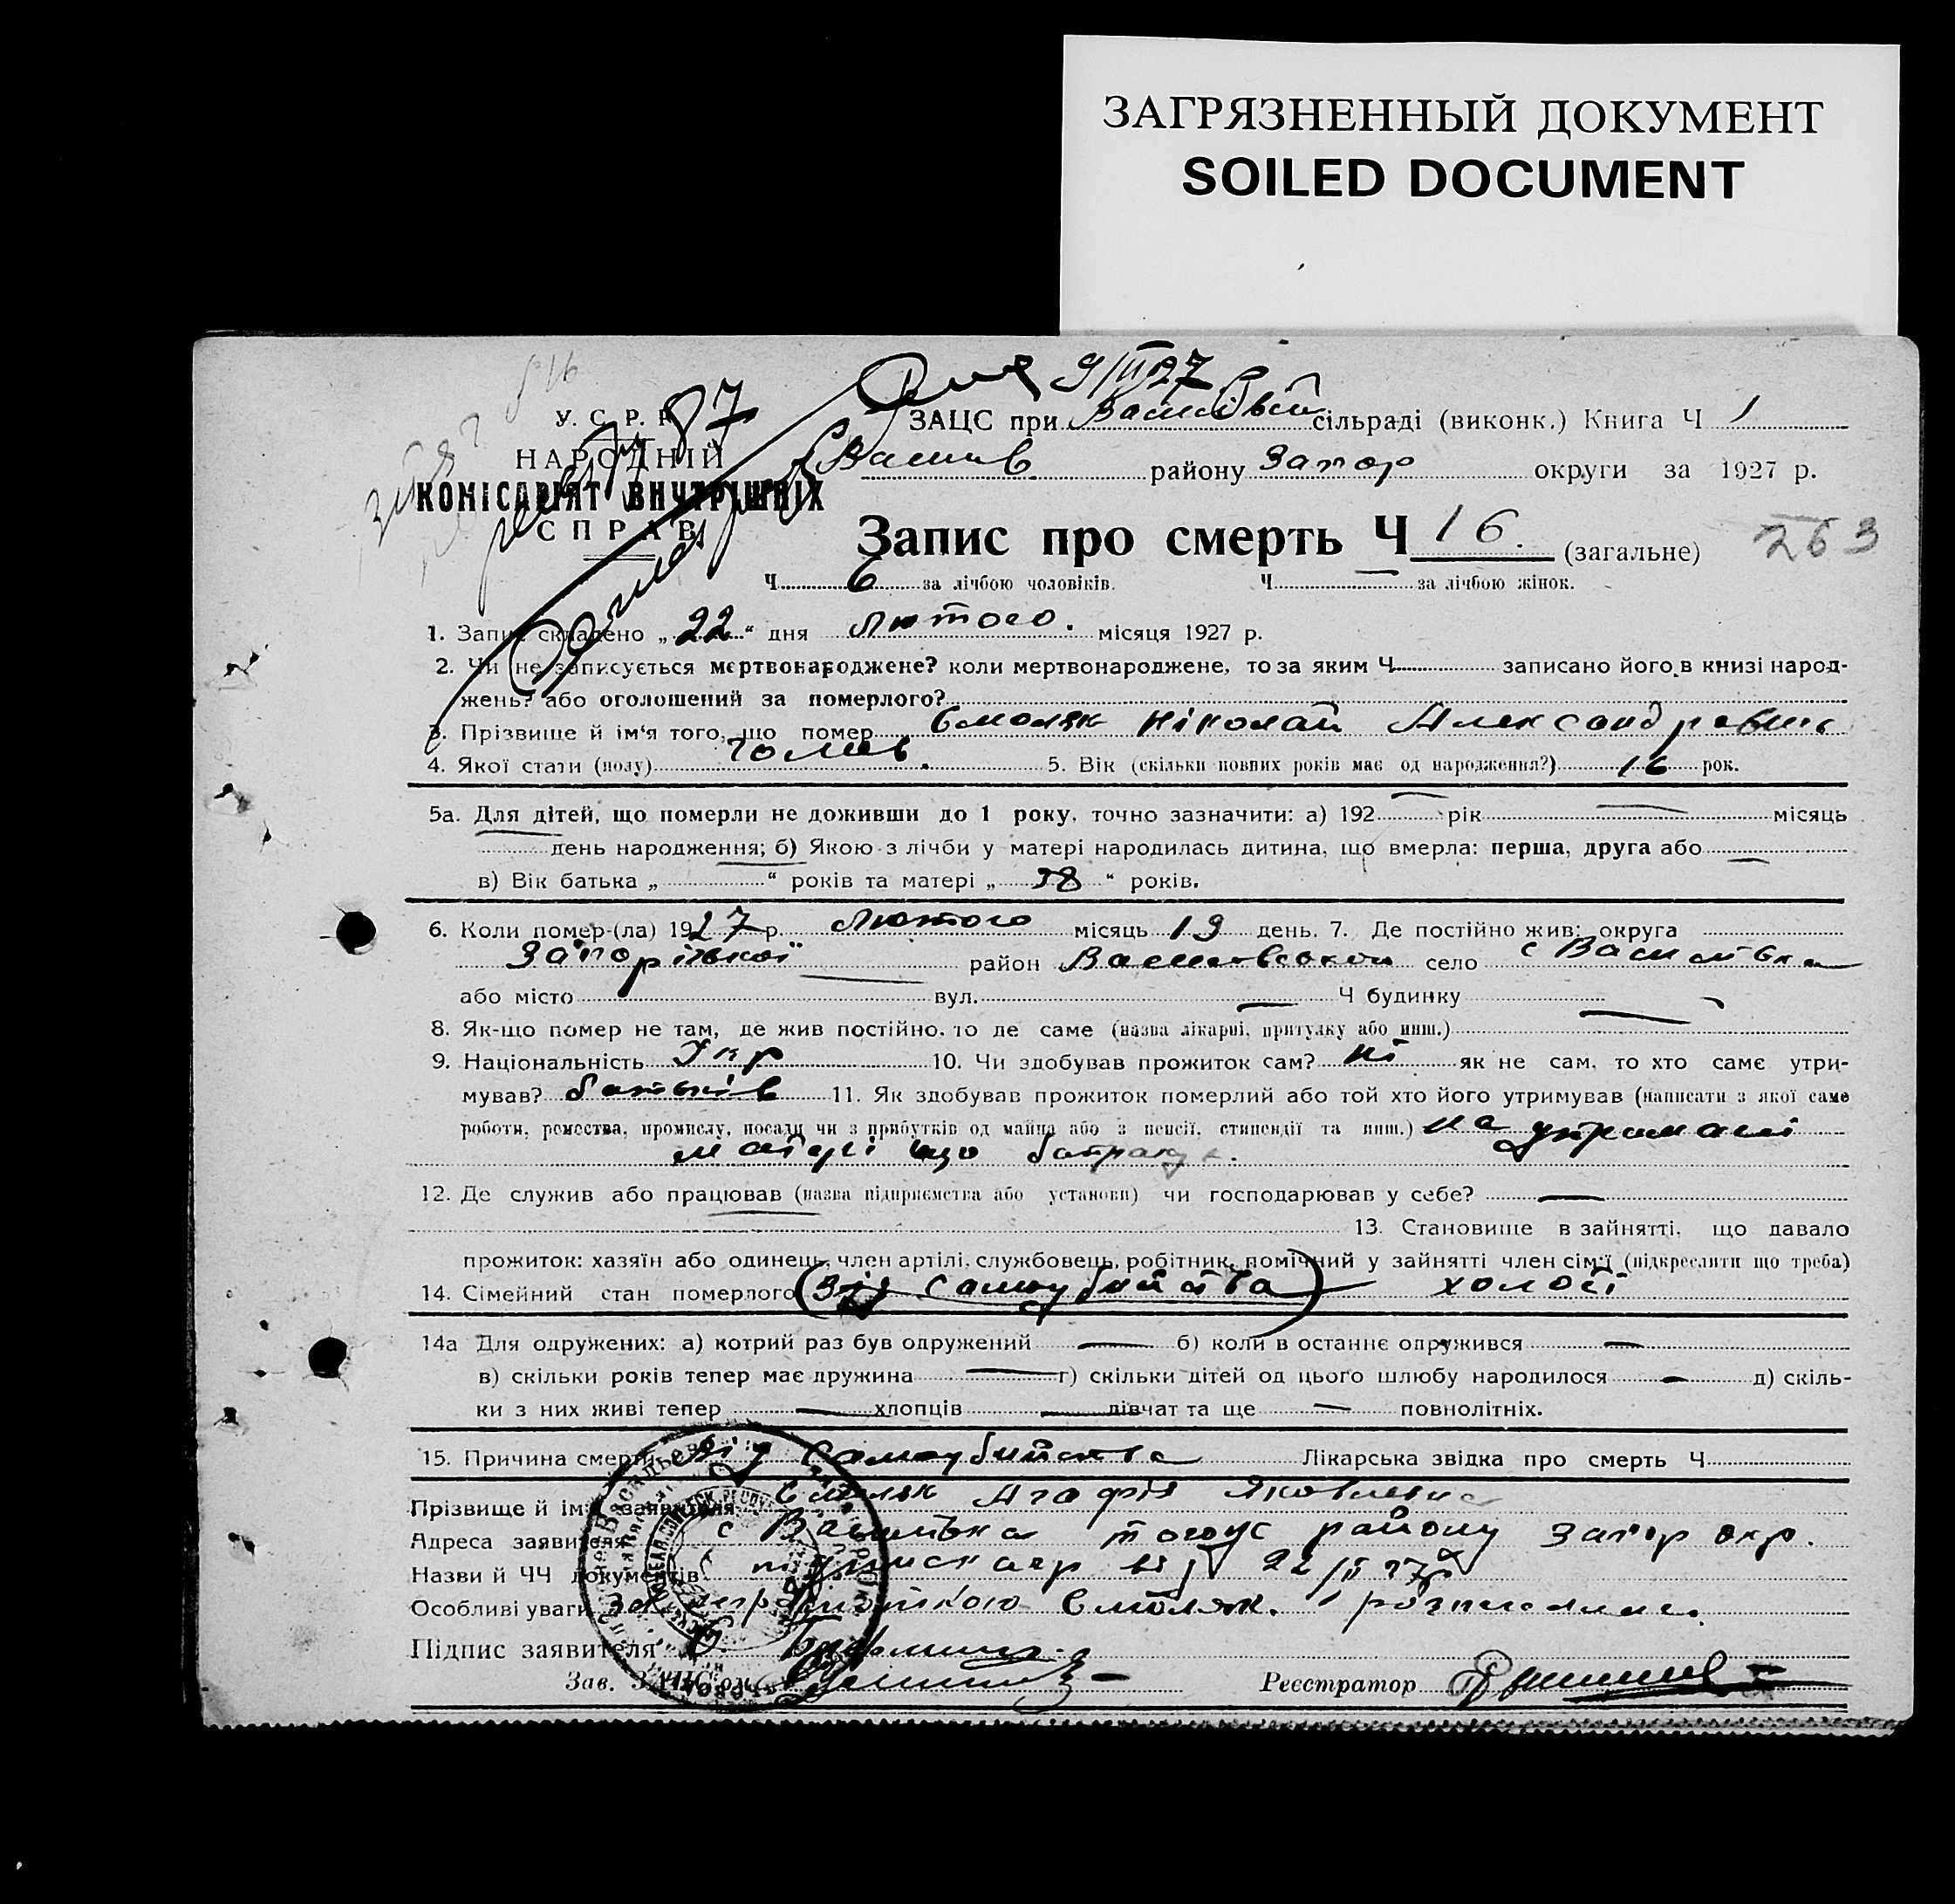 ЗАГРЯЗНЕННЫЙ ДОКУМЕНТ
SOILED DOCUMENT
9/III 27
У. С. Р. Р. 87
НАРОДНІЙ
КОМІСАРІЯТ ВНУТРІШНІХ
СПРАВ
ЗАЦС при сільраді (виконк.) Книга Ч 1
Васил району Запор округи за 1927 р.
Запис про смерть Ч 16. (загальне) 263
Ч 6 за лічбою чоловіків. Ч — за лічбою жінок.
1. Запис складено „22“ дня Лютого. місяця 1927 р.
2. Чи не записується мертвонароджене? коли мертвонароджене, то за яким Ч записано його в книзі народ-
жень? або оголошений за померлого?
3. Прізвище й ім'я того, що помер Смоляк Ніколай Александревич
4. Якої стати (полу) чолов. 5. Вік (скільки повних років має од народження?) 16 рок.
5а. Для дітей, що померли не доживши до 1 року, точно зазначити: а) 192 — рік — місяць
день народження; б) Якою з лічби у матері народилась дитина, що вмерла: перша, друга або —
в) Вік батька „ “ років та матері „ 38 “ років.
6. Коли помер-(ла) 1927 р. Лютого місяць 19 день. 7. Де постійно жив: округа
Запоріської район Василівськои село с Василівка
або місто — вул. — Ч будинку —
8. Як-що помер не там, де жив постійно, то де саме (назва лікарні, притулку або инш.) —
9. Національність Укр 10. Чи здобував прожиток сам? ні як не сам, то хто саме утри-
мував? батьків 11. Як здобував прожиток померлий або той хто його утримував (написати з якої саме
роботи, ремества, промислу, посади чи з прибутків од майна або з пенсії, стипендії та инш.) на утримані
матері що батракує.
12. Де служив або працював (назва підприємства або установи) чи господарював у себе? —
13. Становище в зайнятті, що давало
прожиток: хазяїн або одинець, член артілі, службовець, робітник, помічний у зайнятті член сім'ї (підкреслити що треба)
14. Сімейний стан померлого (від самоубийства) холост
14а Для одружених: а) котрий раз був одружений — б) коли в останнє одружився —
в) скільки років тепер має дружина — г) скільки дітей од цього шлюбу народилося — д) скіль-
ки з них живі тепер — хлопців — дівчат та ще — повнолітніх.
15. Причина смерти від самоубийства Лікарська звідка про смерть Ч
Прізвище й ім'я заявителя Смоляк Агафія Яковлевна
Адреса заявителя с Василівка того ж району Запор окр.
Назви й ЧЧ документів від 22/II 27
Особливі уваги за неграмотною Смоляк.
Підпис заявителя
Зав. ЗАЦС'ом
Реєстратор